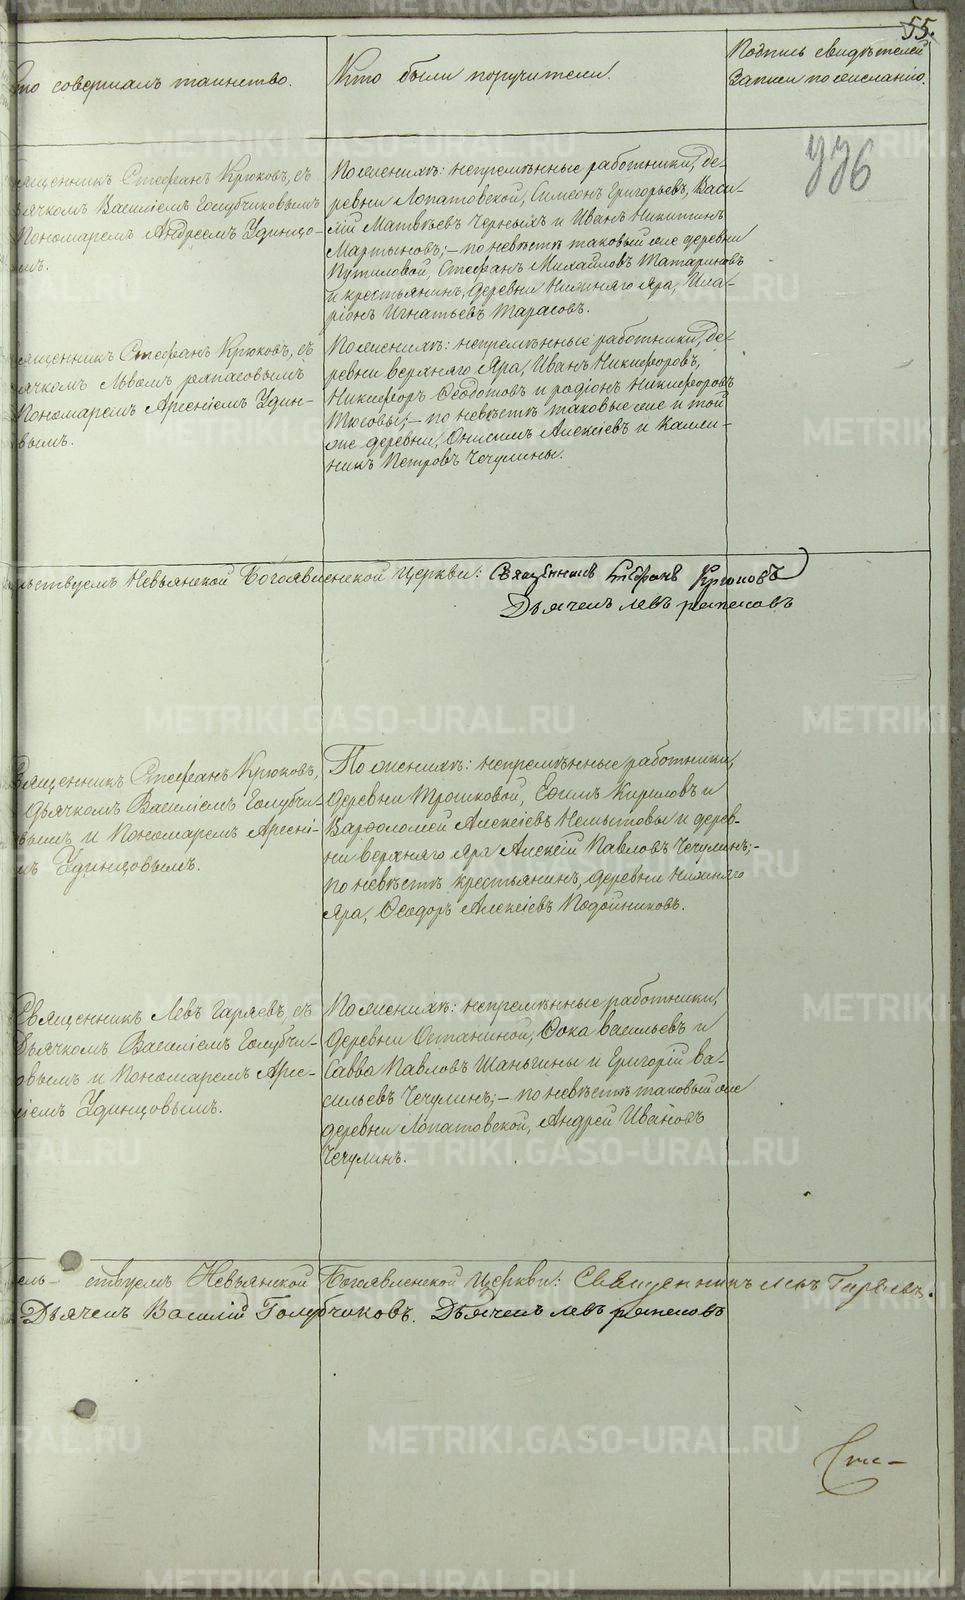 55.
то совершалъ таинство.
Кто были поручители.
Подпись свидѣтелей
записи по желанію.
ященникъ Стефанъ Крюковъ, съ
ьячкомъ Василіемъ Голубчиковымъ
Пономаремъ Андреемъ Удинцо-
мъ.
По женихѣ: непремѣнные работники, де-
ревни Лопатовской, Симеонъ Григорьевъ, Васи-
лій Матвѣевъ Черныхъ и Иванъ Никитинъ
Мартыновъ; — по невѣстѣ таковый же деревни
Путиловой, Стефанъ Михайловъ Татариновъ
и крестьянинъ, деревни Нижняго Яра, Ила-
ріонъ Игнатьевъ Тарасовъ.
776
ященникъ Стефанъ Крюковъ, съ
ячкомъ Львомъ
Пономаремъ Арсеніемъ Удин-
вымъ.
По женихѣ: непремѣнные работники, де-
ревни верхняго Яра, Иванъ Никифоровъ,
Никифоръ Ѳедотовъ и Родіонъ Никифоровъ
— по невѣстѣ таковые же и той
же деревни, Онисимъ Алексіевъ и Калли-
никъ Петровъ Чечулины.
льствуемъ Невьянской Богоявленской Церкви: Священникъ Стефанъ Крюковъ
Дьячекъ Левъ
вященникъ Стефанъ Крюковъ,
дьячкомъ Василіемъ Голубчи-
вымъ и Пономаремъ Арсені-
мъ Удинцовымъ.
По женихѣ: непремѣнные работники,
деревни Трошковой, Ефимъ Кириловъ и
Варѳоломей Алексіевъ Немытовы и дерев-
ни верхняго Яра Алексій Павловъ Чечулинъ; —
по невѣстѣ крестьянинъ, деревни Нижняго
Яра, Ѳеодоръ Алексіевъ Подойниковъ.
Священникъ Левъ Гаряевъ, съ
дьячкомъ Василіемъ Голубчи-
овымъ и Пономаремъ Арсе-
ніемъ Удинцовымъ.
По женихѣ: непремѣнные работники,
деревни Останиной, Ѳока Васильевъ и
Савва Павловъ Шаньгины и Григорій Ва-
сильевъ Чечулинъ; — по невѣстѣ таковый же
деревни Лопатовской, Андрей Ивановъ
Чечулинъ.
ель- ствуемъ Невьянской Богоявленской Церкви: Священникъ Левъ Гаряевъ.
Дьячекъ Василій Голубчиковъ. Дьячекъ Левъ